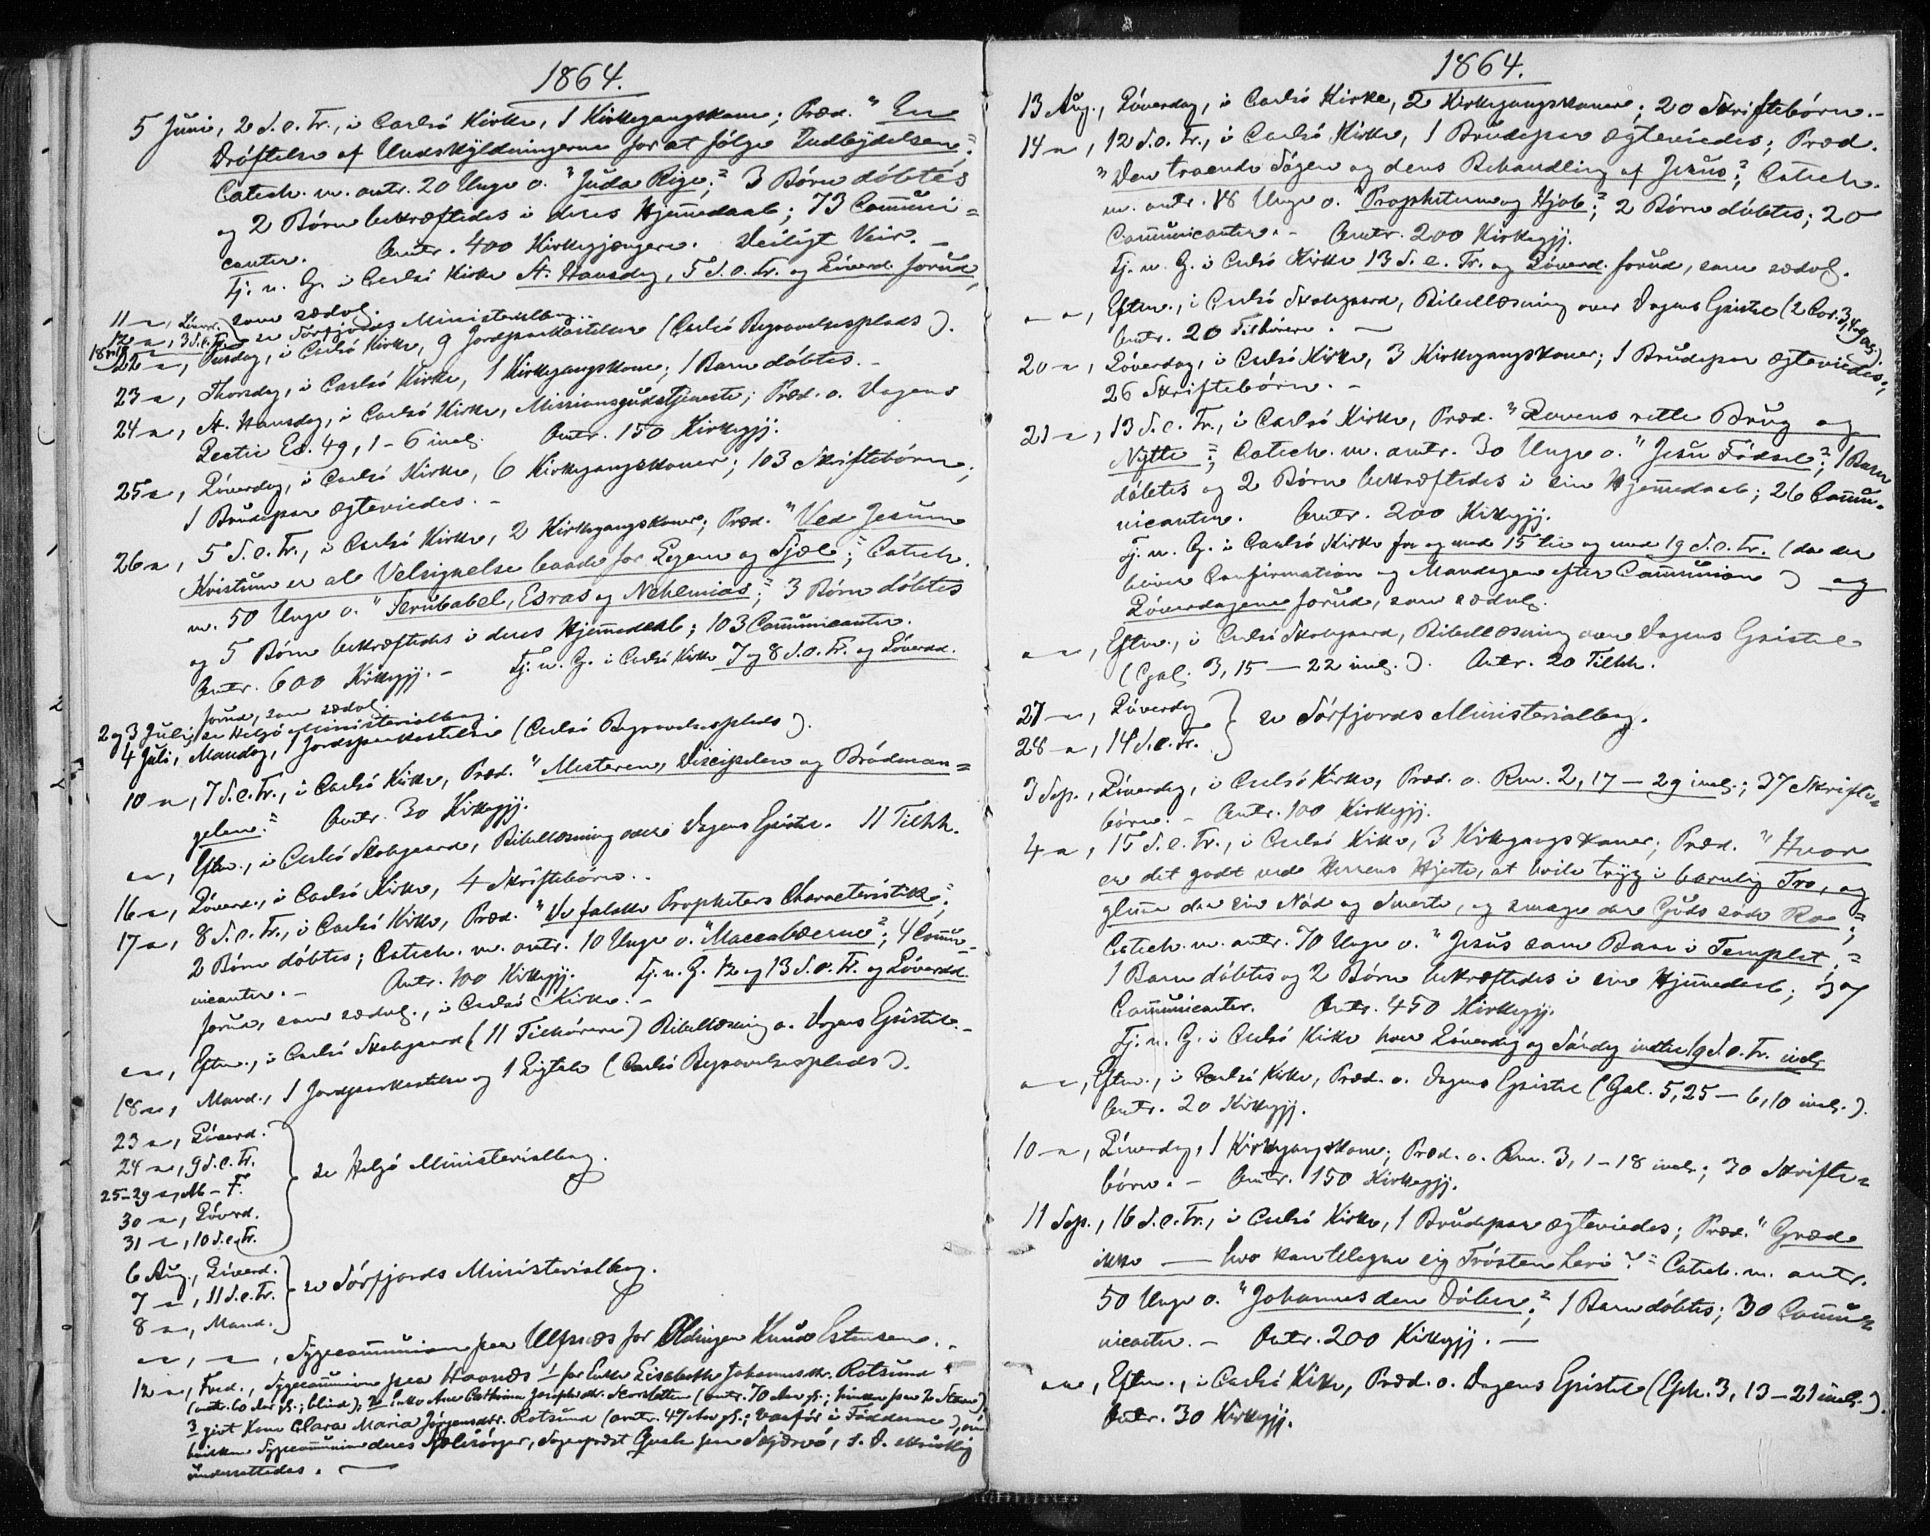 1864.
5 Juni, 2 S. e. Tr., i Carlsö Kirke, 1 Kirkegangskone; Præd. "En
Dröftelse af Undskyldningerne for at fölge Indbydelsen";
Catech. m. antr. 20 Unge o. "Juda Rige"; 3 Børn döbtes
og 2 Börn bekræftedes i deres Hjemedaab; 73 Comuni=
canter. Antr. 400 Kirkegjængere. Deiligt Veir. —
Tj. n. G. i Carlsö Kirke St. Hansdag, 5 S. e. Tr. og Löverd. forud,
som sædvl.
11 —, Löverd.
12 —, 3 S. e. Tr. se Sörfjords Ministerialbog.
22 —, Onsdag, i Carlsö Kirke, 9 Jordpaakastelser (Carlsö Begravelsesplads).
23 —, Thorsdag, i Carlsö Kirke, 1 Kirkegangskone; 1 Barn döbtes. —
24 —, St. Hansdag, i Carlsö Kirke, Missionsgudstjeneste; Præd. o. Dagens
Lectie Es. 49, 1 – 6 incl. Antr. 150 Kirkegjj.
25 —, Löverdag, i Carlsö Kirke, 6 Kirkegangskoner; 103 Skriftebörn;
1 Brudepar ægteviedes. —
26 —, 5 S. e. Tr., i Carlsö Kirke, 2 Kirkegangskoner; Præd. "Ved Jesum
Kristum er al Velsignelse baade for Legeme og Sjæl"; Catech.
m. 50 Unge o. "Serubabel, Esras og Nehemias"; 3 Børn döbtes
og 5 Børn bekræftedes i deres Hjemedaab; 103 Comunicanter.
Antr. 600 Kirkegjj. — Tj. n. G. i Carlsö Kirke 7 og 8 S. e. Tr. og Löverdd.
forud, som sædvl.
2 og 3 Juli, se Helgö Ministerialbog.
4 Juli, Mandag, 1 Jordpaakastelse (Carlsö Begravelsesplads).
10 —, 7 S. e. Tr., i Carlsö Kirke, Præd. "Mesteren, Disciplene og Brödman=
gelen." Antr. 30 Kirkegjj.
— —, Eftm., i Carlsö Skolegaard, Bibellæsning over Dagens Epistel. 11 Tilhh.
16 —, Löverd., i Carlsö Kirke, 4 Skriftebörn. —
17 —, 8 S. e. Tr., i Carlsö Kirke, Præd. "De falske Propheters Characteristik";
2 Børn döbtes; Catech. m. antr. 10 Unge o. "Maccabæerne"; 4 Comu=
nicanter. — Antr. 100 Kirkegjj. Tj. n. G. 12 og 13 S. e. Tr. og Löverdd.
forud, som sædvl., i Carlsö Kirke. —
— —, Eftm., i Carlsö Skolegaard (11 Tilhörere) Bibellæsning o. Dagens Epistel. —
18 —, Mand., 1 Jordpaakastelse og 1 Ligtale (Carlsö Begravelsesplads).
23 —, Löverd.
24 —, 9 S. e. Tr.
25–29 —, M – F. se Helgö Ministerialbog.
30 —, Löverd.
31 —, 10 S. e. Tr.
6 Aug., Löverd.
7 —, 11 S. e. Tr. se Sörfjords Ministerialbog.
8 —, Mand.
— —, —, Sygecomunion paa Ulfsnæs for Oldingen Knud Estensen. —
12 —, Fred., Sygecomunion paa Havnæs 1 for Enke Elisabeth Johannesdtr. Rotsund
(antr. 60 Aar gl.; blind); 2 Enke Ane Cathrina Josephsdtr. (antr. 70 Aar gl.;
3 givt Kone Clara Maria Jörgensdtr. Rotsund (antr. 47 Aar gl.; vanför i Födderne), om
hvilken Sygecomunion deres Sjælesörger, Sognepræst paa Skjærvö, s. D. skriftlig
underrettedes. —
1864.
13 Aug., Löverdag, i Carlsö Kirke, 2 Kirkegangskoner; 20 Skriftebörn. —
14 —, 12 S. e. Tr., i Carlsö Kirke, 1 Brudepar ægteviedes; Præd.
"Den troende Sögen og dens Behandling af Jesus"; Catech.
m. antr. 18 Unge o. "Propheterne og Hjob"; 2 Børn döbtes; 20
Comunicanter. — Antr. 200 Kirkegjj.
Tj. n. G. i Carlsö Kirke 13 S. e. Tr. og Löverd. forud, som sædvl.
— —, Eftm., i Carlsö Skolegaard, Bibellæsning over Dagens Epistel (2 Cor. 3, 4–9 incl.)
Antr. 20 Tilhörere. —
20 —, Löverdag, i Carlsö Kirke, 3 Kirkegangskoner; 1 Brudepar ægteviedes;
26 Skriftebörn. —
21 —, 13 S. e. Tr., i Carlsö Kirke, Præd. "Lovens rette Brug og
Nytte"; Catech. m. antr. 30 Unge o. "Jesu Födsel"; 1 Barn
döbtes og 2 Børn bekræftedes i sin Hjemedaab; 26 Comu=
nicanter. Antr. 200 Kirkegjj.
Tj. n. G. i Carlsö Kirke fra og med 15 til og med 19 S. e. Tr. (da der
bliver Confirmation og Mandagen efter Comunion) og
Löverdagene forud, som sædvl.
— —, Eftm., i Carlsö Skolegaard, Bibellæsning over Dagens Epistel
(Gal. 3, 15 — 22 incl.). Antr. 20 Tilhh.
27 —, Löverdag
28 —, 14 S. e. Tr. se Sörfjords Ministerialbog.
3 Sep., Löverdag, i Carlsö Kirke, Præd. o. Rom. 2, 17 — 29 incl.; 37 Skrifte=
börn. — Antr. 100 Kirkegjj.
4 —, 15 S. e. Tr., i Carlsö Kirke, 3 Kirkegangskoner; Præd. "Hvor
er det godt ved Herrens Hjerte, at hvile tryg i barnlig Tro, og
glemme der sin Nöd og Smerte, og smage der Guds söde Ro";
Catech. m. antr. 70 Unge o. "Jesus som Barn i Templet";
1 Barn döbtes og 2 Børn bekræftedes i sin Hjemedaab; 37
Comunicanter. Antr. 450 Kirkegjj.
Tj. n. G. i Carlsö Kirke hver Löverdag og Söndag indtil 19 S. e. Tr. incl.
— —, Eftm., i Carlsö Kirke, Præd. o. Dagens Epistel (Gal. 5, 25 — 6, 10 incl.).
Antr. 20 Kirkegjj.
10 —, Löverdag, 1 Kirkegangskone; Præd. o. Rom. 3, 1 – 18 incl.; 30 Skrifte=
börn. — Antr. 150 Kirkegjj.
11 Sep., 16 S. e. Tr., i Carlsö Kirke, 1 Brudepar ægteviedes; Præd. "Græd
ikke — hvo kan tilegne sig Trösten heri?" Catech. m. antr.
50 Unge o. "Johannes den Döber"; 1 Barn döbtes; 30 Comu=
nicanter. — Antr. 200 Kirkegjj. —
— —, Eftm., i Carlsö Kirke, Præd. o. Dagens Epistel (Eph. 3, 13 – 21 incl.).
Antr. 30 Kirkegjj.